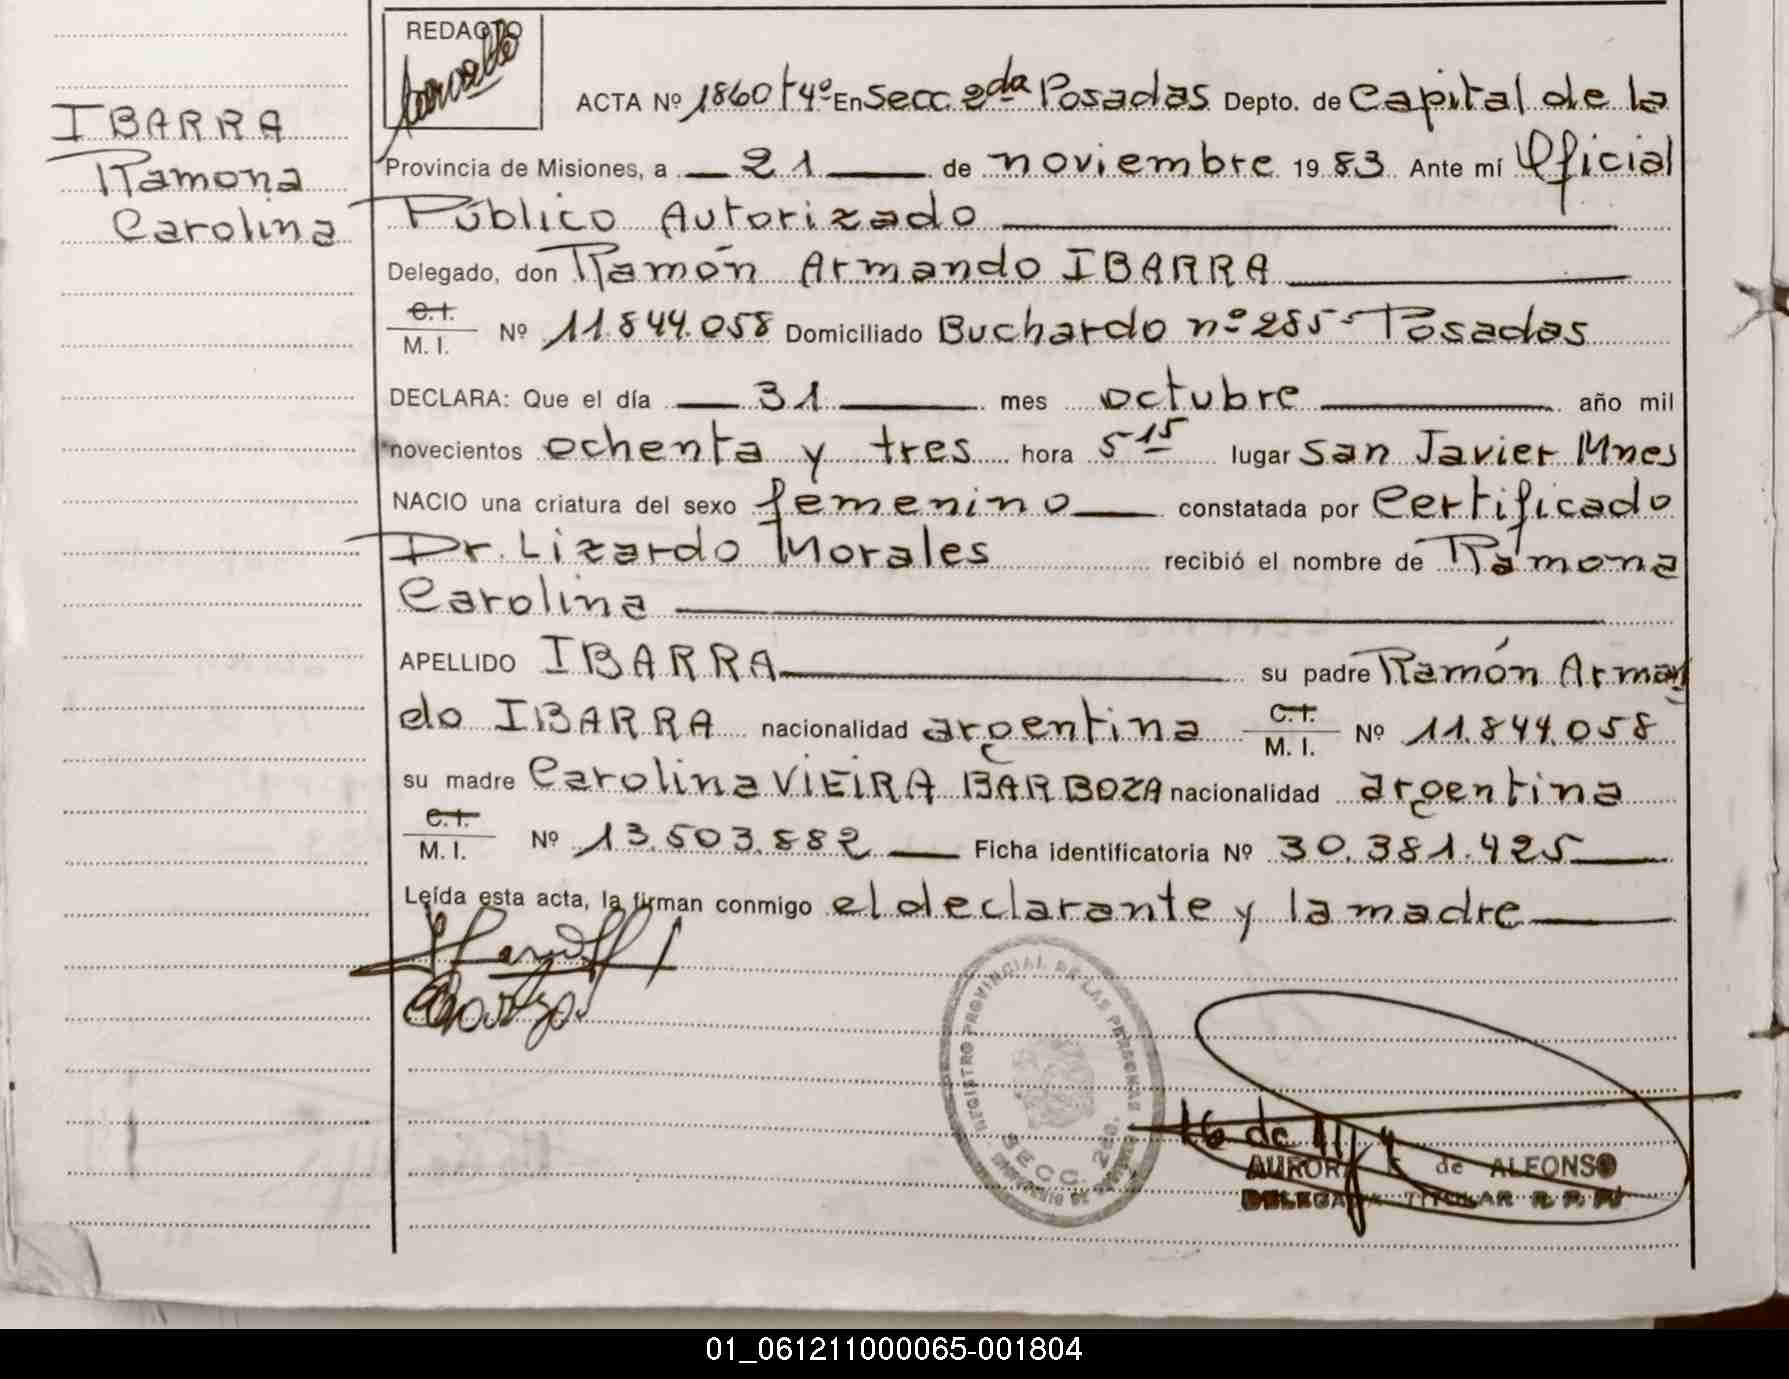 REDACTO
IBARRA
Ramona
Carolina
ACTA Nº 1860 t4º En Secc. 2da Posadas Depto. de Capital de la
Provincia de Misiones, a 21 de noviembre 1983 Ante mí Oficial
Público Autorizado
Delegado, don Ramón Armando IBARRA
C.I.
M. I. Nº 11.844.058 Domiciliado Buchardo nº 285 - Posadas
DECLARA: Que el día 31 mes octubre año mil
novecientos ochenta y tres hora 5 15 lugar San Javier Mnes
NACIO una criatura del sexo femenino constatada por Certificado
Dr. Lizardo Morales recibió el nombre de Ramona
Carolina
APELLIDO IBARRA su padre Ramón Arman
do IBARRA nacionalidad argentina C.I. M. I. Nº 11.844.058
su madre Carolina VIEIRA BARBOZA nacionalidad argentina
C.I.
M. I. Nº 13.503.882 Ficha identificatoria Nº 30.381.425
Leída esta acta, la firman conmigo el declarante y la madre
REGISTRO PROVINCIAL DE LAS PERSONAS
SECC. 2da.
16 de
AURORA de ALFONSO
DELEGADA TITULAR R. P. P.
01_061211000065-001804